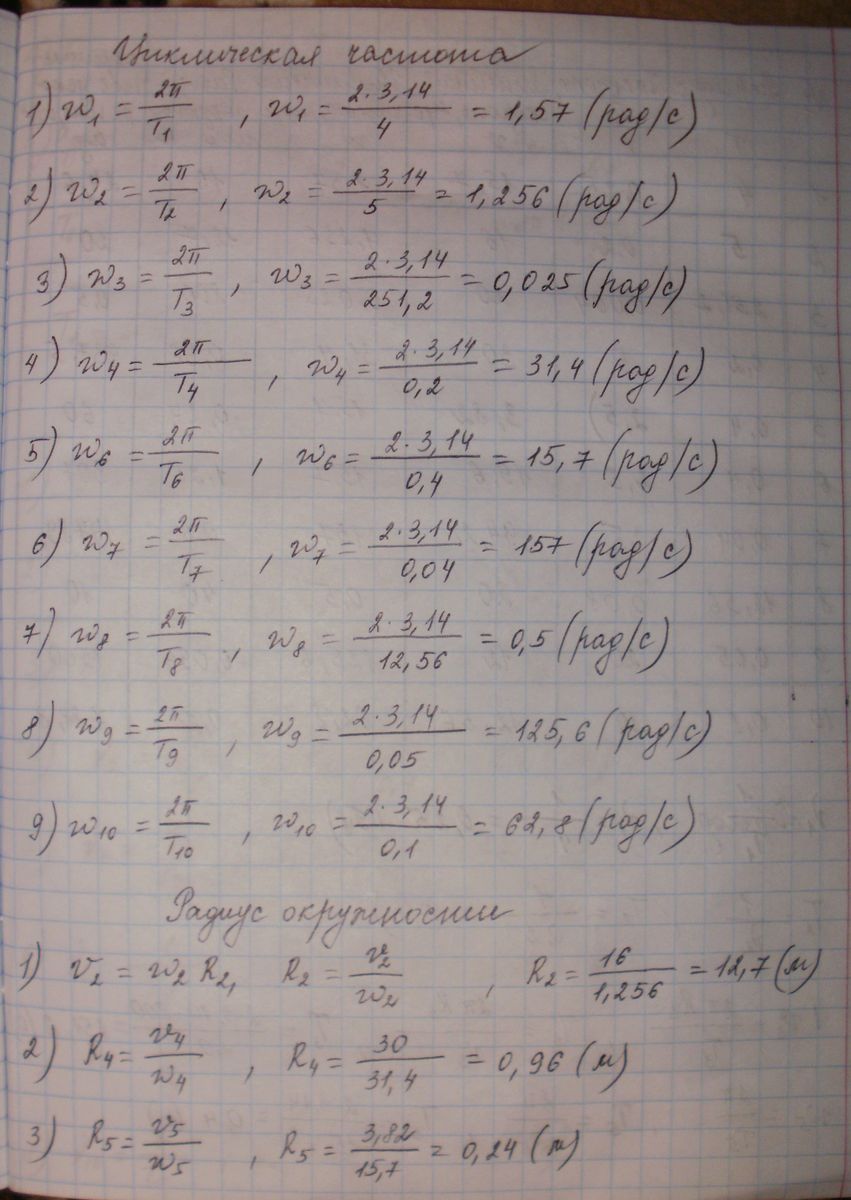 Циклическая частота
1) w₁ = 2π/T₁ , w₁ = 2·3,14/4 = 1,57 (рад/с)
2) w₂ = 2π/T₂ , w₂ = 2·3,14/5 = 1,256 (рад/с)
3) w₃ = 2π/T₃ , w₃ = 2·3,14/251,2 = 0,025 (рад/с)
4) w₄ = 2π/T₄ , w₄ = 2·3,14/0,2 = 31,4 (рад/с)
5) w₆ = 2π/T₆ , w₆ = 2·3,14/0,4 = 15,7 (рад/с)
6) w₇ = 2π/T₇ , w₇ = 2·3,14/0,04 = 157 (рад/с)
7) w₈ = 2π/T₈ , w₈ = 2·3,14/12,56 = 0,5 (рад/с)
8) w₉ = 2π/T₉ , w₉ = 2·3,14/0,05 = 125,6 (рад/с)
9) w₁₀ = 2π/T₁₀ , w₁₀ = 2·3,14/0,1 = 62,8 (рад/с)
Радиус окружности
1) v₂ = w₂ R₂, R₂ = v₂/w₂ , R₂ = 16/1,256 = 12,7 (м)
2) R₄ = v₄/w₄ , R₄ = 30/31,4 = 0,96 (м)
3) R₅ = v₅/w₅ , R₅ = 3,82/15,7 = 0,24 (м)